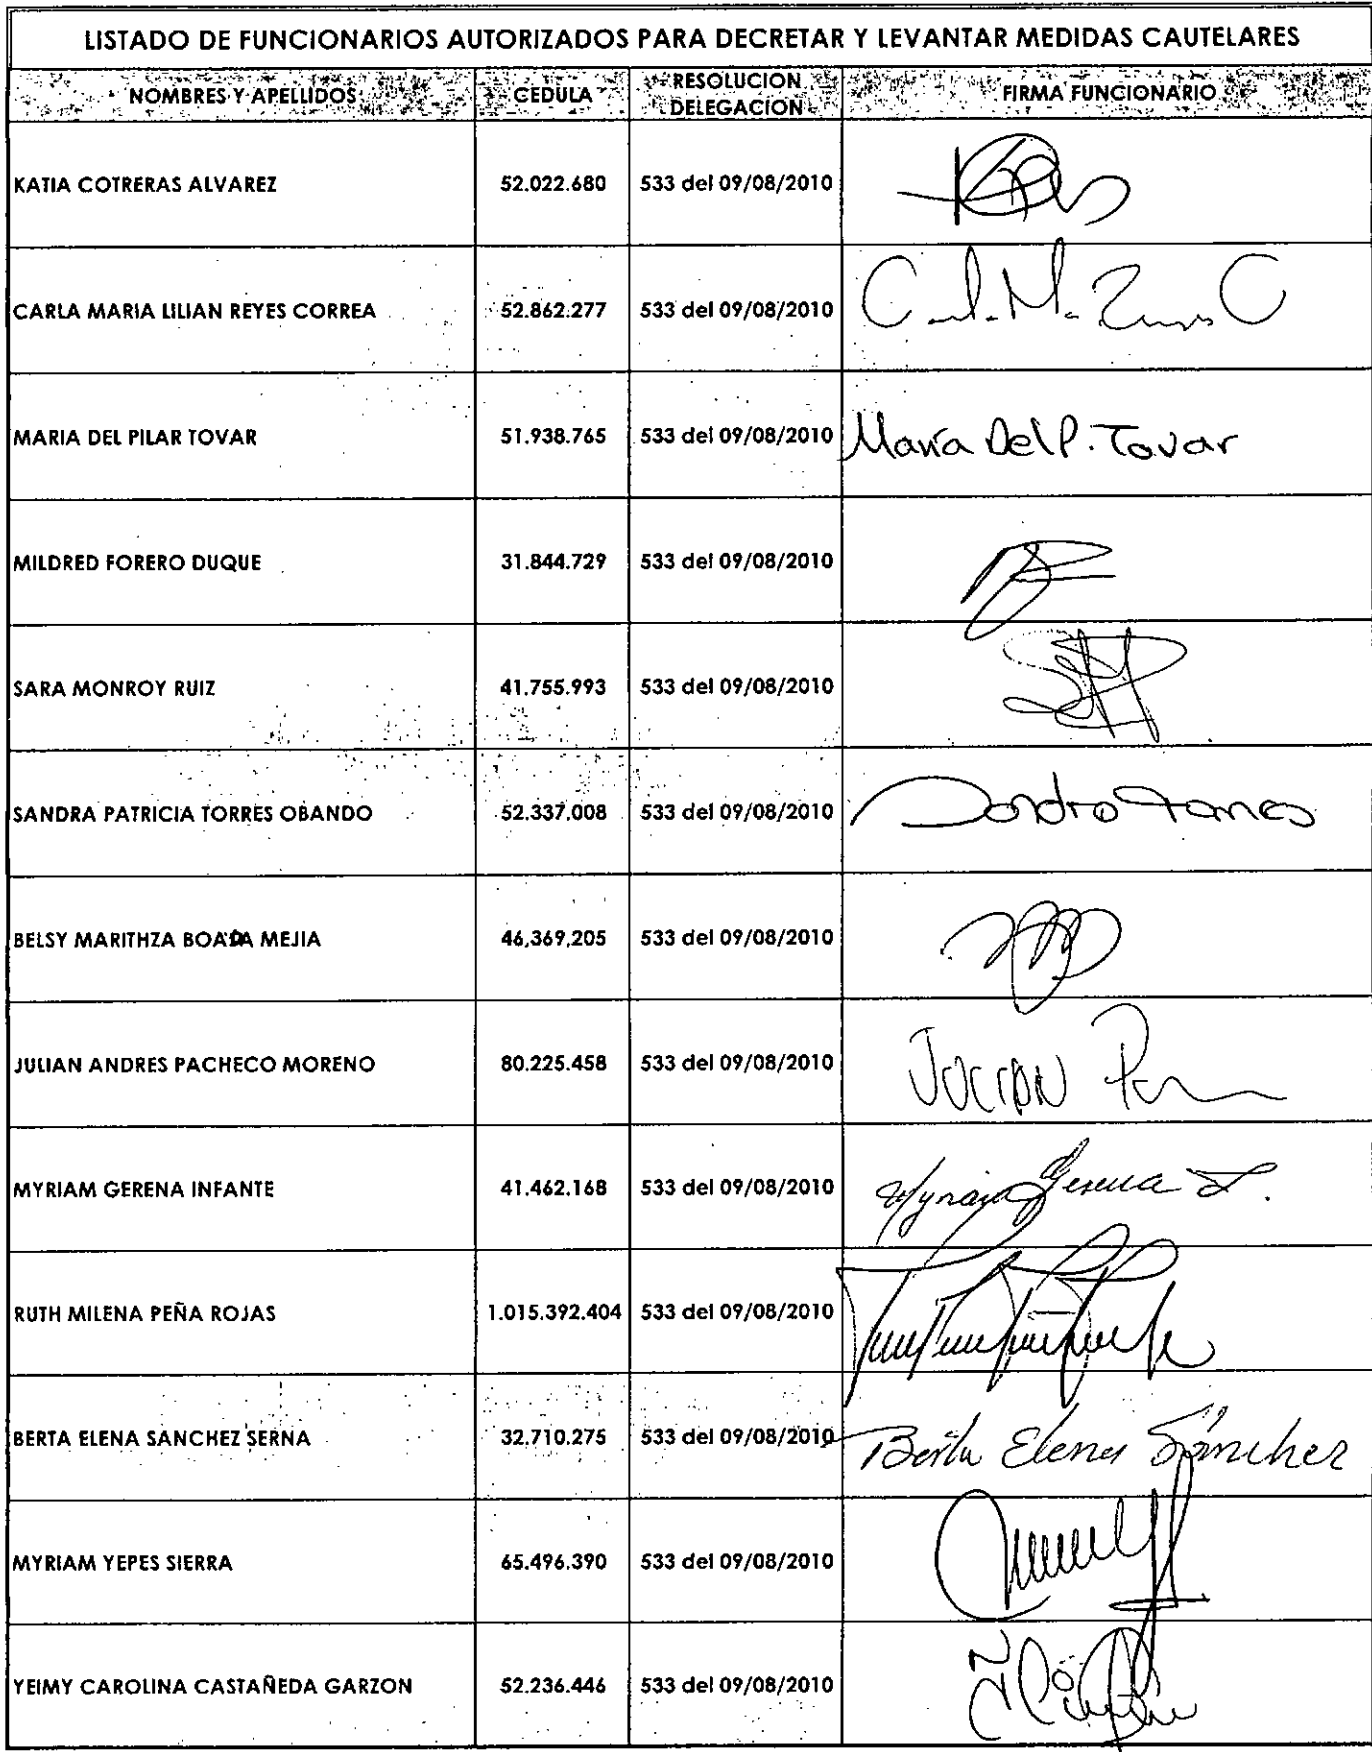 LISTADO DE FUNCIONARIOS AUTORIZADOS PARA DECRETAR Y LEVANTAR MEDIDAS CAUTELARES
NOMBRES Y APELLIDOS CEDULA RESOLUCION DELEGACION FIRMA FUNCIONARIO
KATIA COTRERAS ALVAREZ 52.022.680 533 del 09/08/2010
CARLA MARIA LILIAN REYES CORREA 52.862.277 533 del 09/08/2010
MARIA DEL PILAR TOVAR 51.938.765 533 del 09/08/2010 María Del P. Tovar
MILDRED FORERO DUQUE 31.844.729 533 del 09/08/2010
SARA MONROY RUIZ 41.755.993 533 del 09/08/2010
SANDRA PATRICIA TORRES OBANDO 52.337.008 533 del 09/08/2010 Sandra Torres
BELSY MARITHZA BOADA MEJIA 46,369,205 533 del 09/08/2010
JULIAN ANDRES PACHECO MORENO 80.225.458 533 del 09/08/2010 JULIAN
MYRIAM GERENA INFANTE 41.462.168 533 del 09/08/2010 Myriam Gerena I.
RUTH MILENA PEÑA ROJAS 1.015.392.404 533 del 09/08/2010
BERTA ELENA SANCHEZ SERNA 32.710.275 533 del 09/08/2010 Berta Elena Sánchez
MYRIAM YEPES SIERRA 65.496.390 533 del 09/08/2010
YEIMY CAROLINA CASTAÑEDA GARZON 52.236.446 533 del 09/08/2010